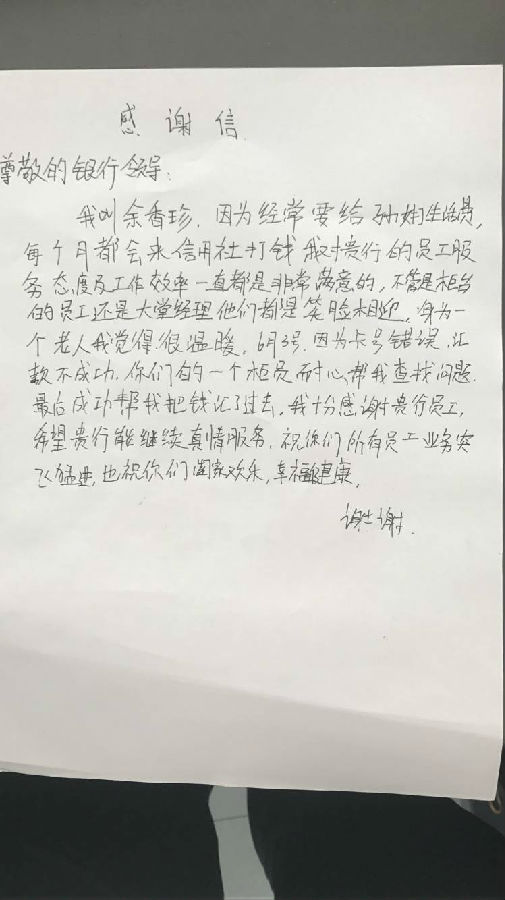 感谢信
尊敬的银行领导：
我叫余香珍，因为经常要给孙娴生活费，
每个月都会来信用社打钱我对贵行的员工服
务态度及工作效率一直都是非常满意的，不管是柜台
的员工还是大堂经理他们都是笑脸相迎，身为一
个老人我觉得很温暖，6月3号，因为卡号错误，汇
款不成功，你们的一个柜员耐心帮我查找问题，
最后成功帮我把钱汇了过去，我十分感谢贵行员工，
希望贵行能继续真情服务，祝你们所有员工业务突
飞猛进，也祝你们阖家欢乐，幸福健康，
谢谢.